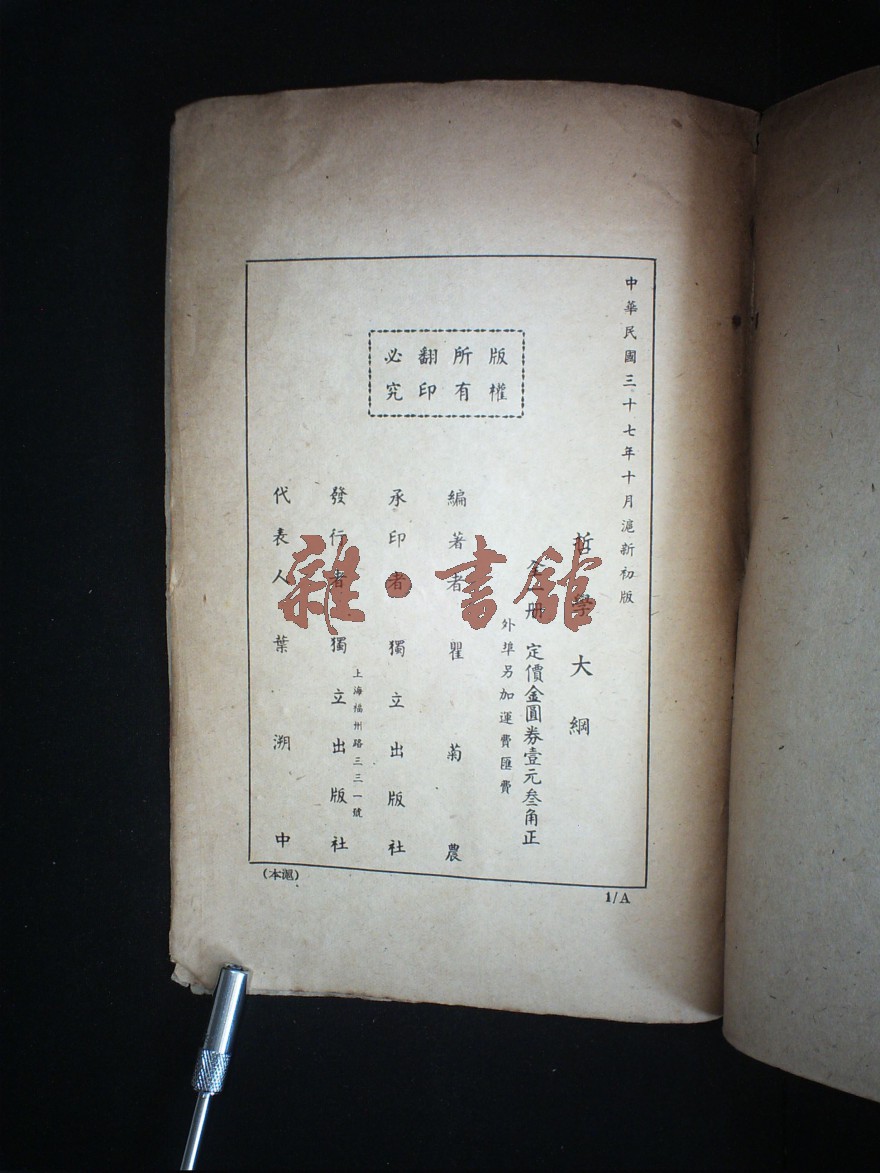 中華民國三十七年十月滬新初版
哲學大綱
全一冊 定價金圓券壹元叁角正
外埠另加運費匯費
版權
所有
翻印
必究
編著者 瞿菊農
承印者 獨立出版社
上海福州路三三一號
發行者 獨立出版社
代表人 葉溯中
(本滬)
1/A
雜·書館